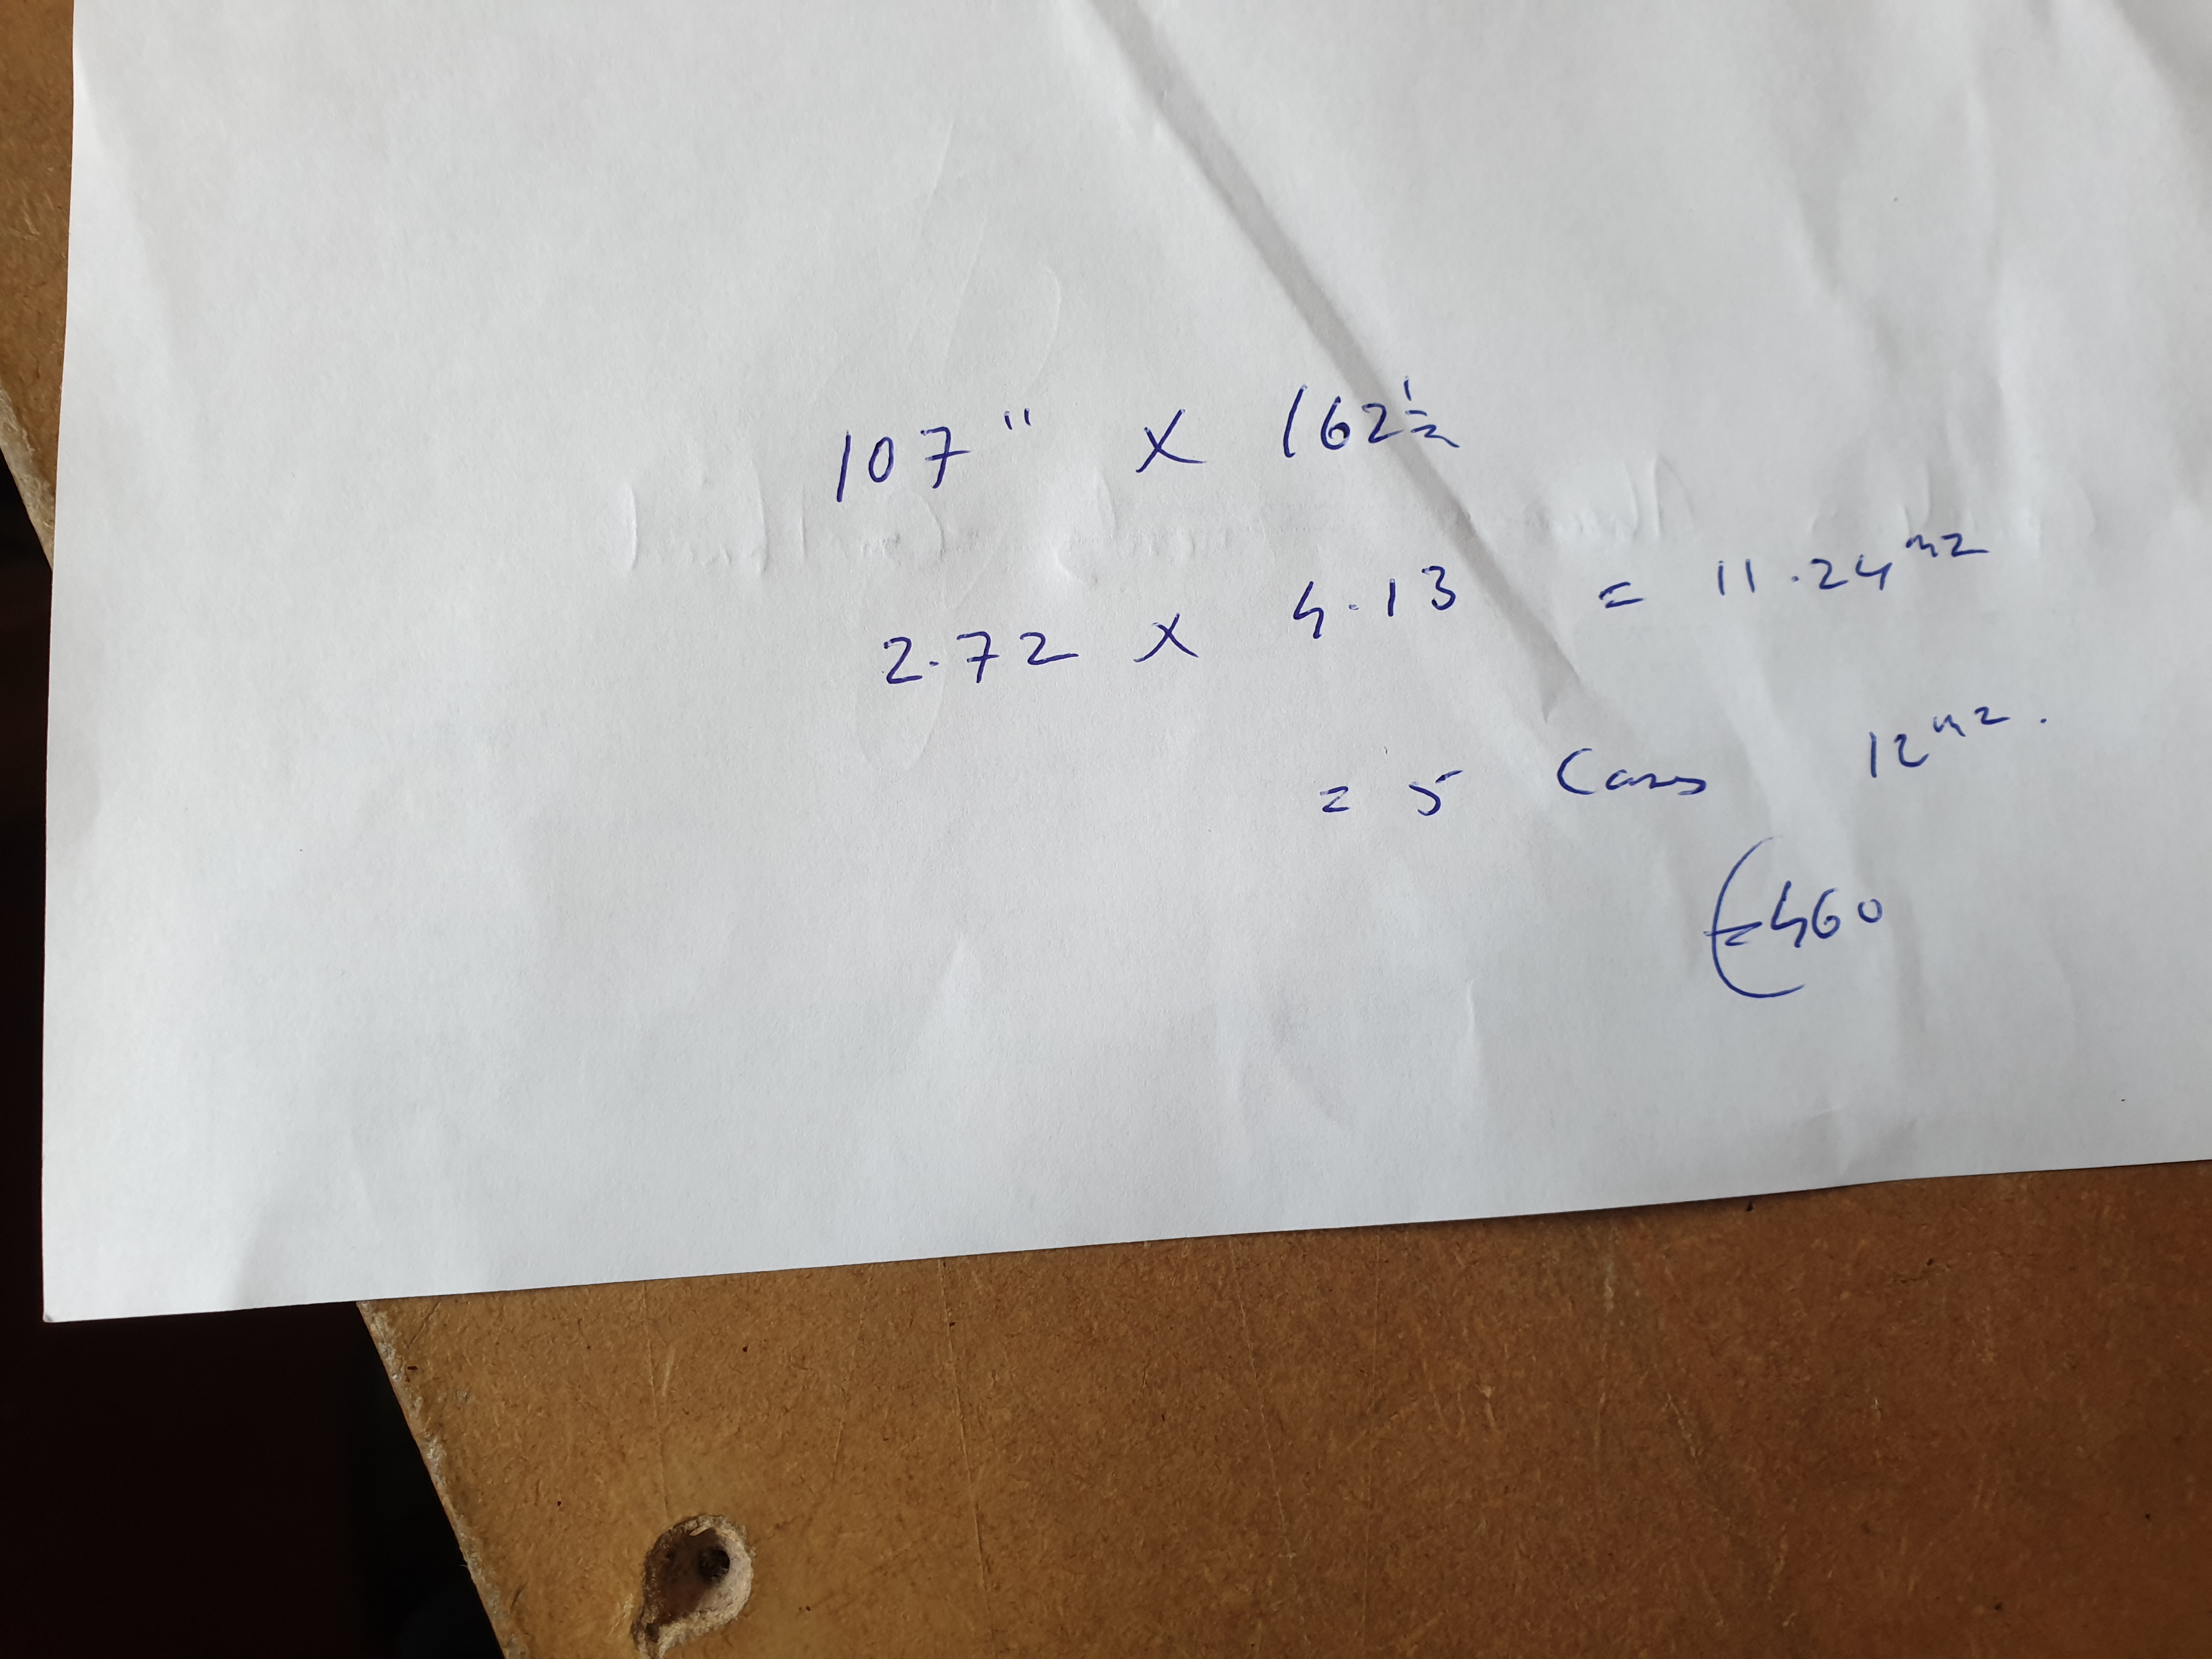 107" x 162½
2.72 x 4.13 = 11.24m2
= 5 Cases 12m2.
€460